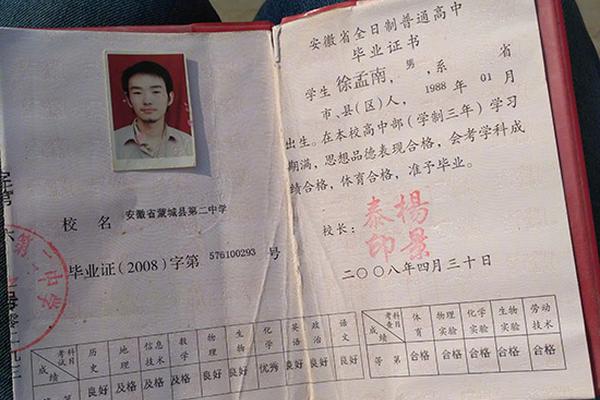 校名 安徽省蒙城县第二中学
毕业证(2008)字第 576100293 号
考试科目 历史 地理 信息技术 数学 物理 生物 化学 英语 政治 语文
成绩 良好 及格 及格 及格 良好 良好 优秀 良好 良好 良好
安徽省全日制普通高中
毕业证书
学生 徐孟南,男,系 省
市、县(区)人,1988年01月
出生。在本校高中部(学制三年)学习
期满,思想品德表现合格,会考学科成
绩合格,体育合格,准予毕业。
校长:
楊景泰印
二〇〇八年四月三十日
考查科目 体育 物理实验 化学实验 生物实验 劳动技术
成绩 等第 合格 合格 合格 合格 合格